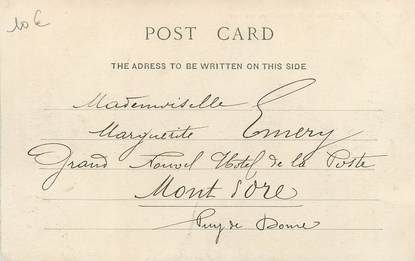 10 €
POST CARD
THE ADRESS TO BE WRITTEN ON THIS SIDE
Mademoiselle
Marguerite Emery
Grand Nouvel Hotel de la Poste
Mont Dore
Puy de Dome